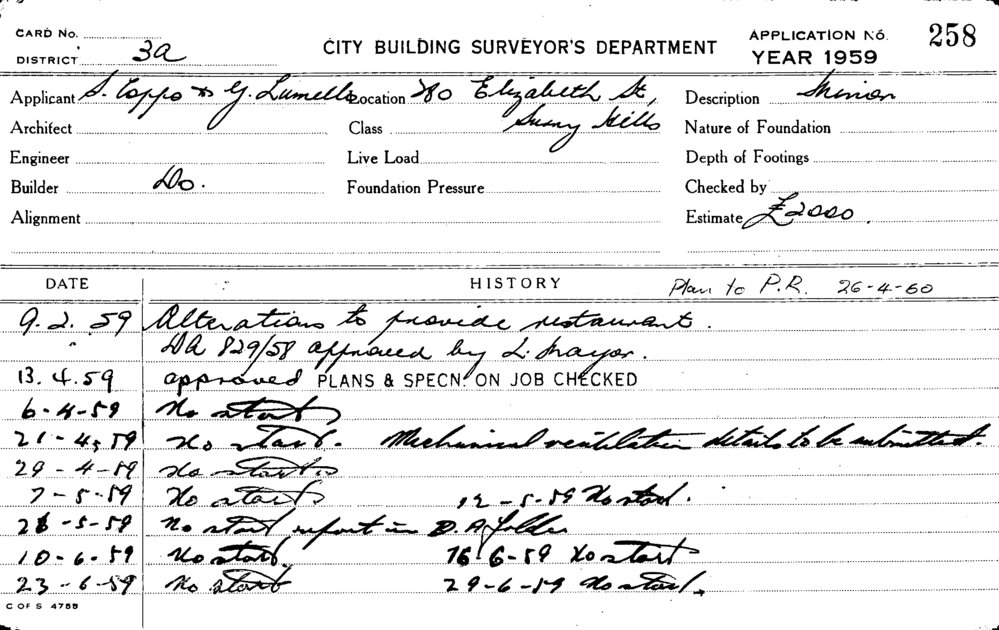 CARD No.
DISTRICT 3a
CITY BUILDING SURVEYOR'S DEPARTMENT
APPLICATION No. 258
YEAR 1959
Applicant S. Coppo & G. Lumello Location 280 Elizabeth St, Description Minor
Architect Class Surry Hills Nature of Foundation
Engineer Live Load Depth of Footings
Builder Do. Foundation Pressure Checked by
Alignment Estimate £2000.
DATE HISTORY Plan to P.R. 26-4-60
9.2.59 Alterations to provide restaurant.
" DA 829/58 approved by L. Mayor.
13.4.59 approved PLANS & SPECN. ON JOB CHECKED
6-4-59 No start
21-4-59 No start. Mechanical ventilation details to be submitted.
29-4-59 No start
7-5-59 No start 12-5-59 No start.
26-5-59 No start report in D.A. folder
10-6-59 No start 16-6-59 No start
23-6-59 No start 29-6-59 No start.
C OF S 4788